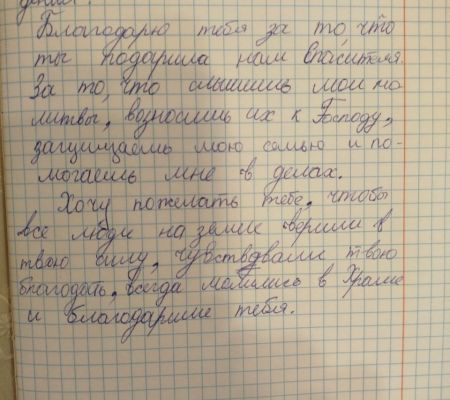 Благодарю тебя за то, что
ты подарила нам Спасителя.
За то, что слышишь мои мо
литвы, возносишь их к Господу,
защищаешь мою семью и по-
могаешь мне в делах.
Хочу пожелать тебе, чтобы
все люди на земле верили в
твою силу, чувствовали твою
благодать, всегда молились в Храме
и благодарили тебя.